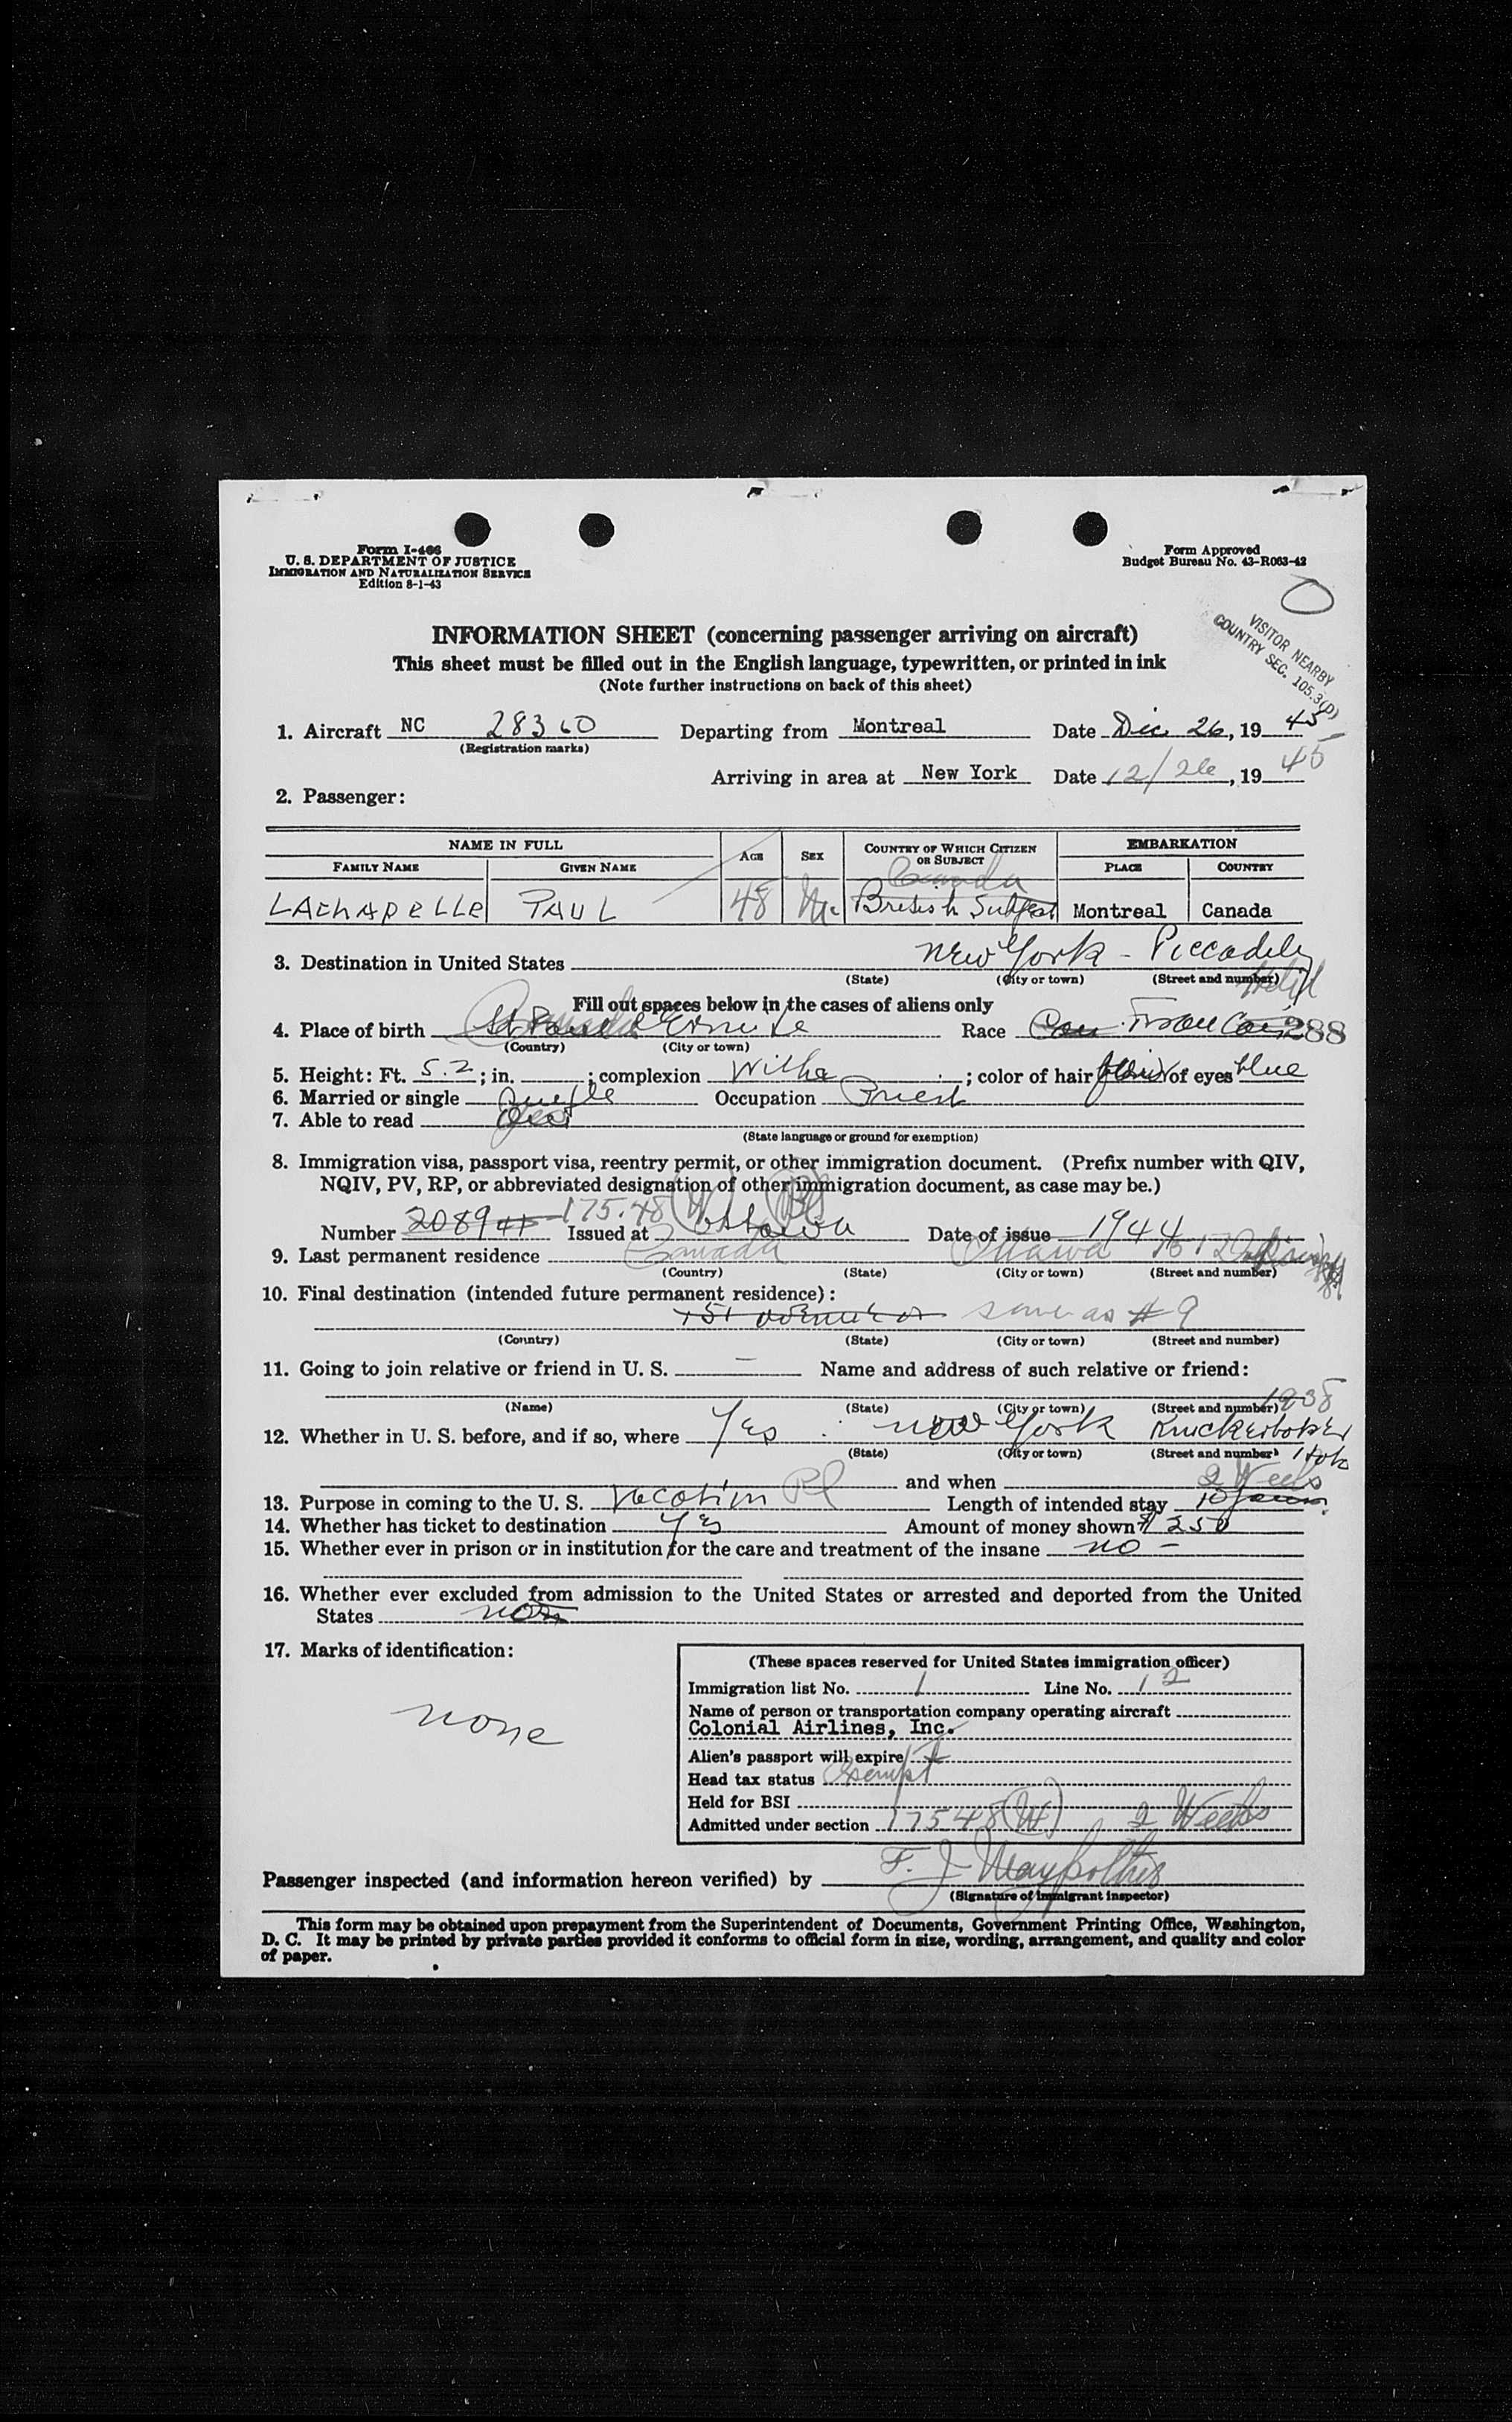 Form I-466
U. S. DEPARTMENT OF JUSTICE
IMMIGRATION AND NATURALIZATION SERVICE
Edition 8-1-43
Form Approved
Budget Bureau No. 43-R063-42
VISITOR NEARBY
COUNTRY SEC. 105.3(P)
INFORMATION SHEET (concerning passenger arriving on aircraft)
This sheet must be filled out in the English language, typewritten, or printed in ink
(Note further instructions on back of this sheet)
1. Aircraft NC 28360 Departing from Montreal Date Dec 26, 19 45
(Registration marks)
Arriving in area at New York Date 12/26, 19 45
2. Passenger:
NAME IN FULL AGE SEX COUNTRY OF WHICH CITIZEN OR SUBJECT EMBARKATION
FAMILY NAME GIVEN NAME PLACE COUNTRY
Canada
LAChAPELLE PAUL 48 M. British Subject Montreal Canada
3. Destination in United States New York - Piccadily
(State) (City or town) (Street and number) Hotel
Fill out spaces below in the cases of aliens only
4. Place of birth Canada Race 288
(Country) (City or town)
5. Height: Ft. 5.2; in. ; complexion ; color of hair of eyes blue
6. Married or single Single Occupation Priest
7. Able to read yes
(State language or ground for exemption)
8. Immigration visa, passport visa, reentry permit, or other immigration document. (Prefix number with QIV,
NQIV, PV, RP, or abbreviated designation of other immigration document, as case may be.)
Number 175.48 (W) Issued at Ottawa Date of issue 1944
9. Last permanent residence Canada Ottawa
(Country) (State) (City or town) (Street and number)
10. Final destination (intended future permanent residence):
same as # 9
(Country) (State) (City or town) (Street and number)
11. Going to join relative or friend in U. S. — Name and address of such relative or friend:
(Name) (State) (City or town) (Street and number) 1938
12. Whether in U. S. before, and if so, where Yes New York Knickerboker
(State) (City or town) (Street and number) Hote
and when 2 Weeks
13. Purpose in coming to the U. S. Vacation Pl Length of intended stay 10
14. Whether has ticket to destination Yes Amount of money shown $ 250
15. Whether ever in prison or in institution for the care and treatment of the insane no -
16. Whether ever excluded from admission to the United States or arrested and deported from the United
States non
17. Marks of identification:
none
(These spaces reserved for United States immigration officer)
Immigration list No. 1 Line No. 12
Name of person or transportation company operating aircraft
Colonial Airlines, Inc.
Alien's passport will expire
Head tax status Exempt
Held for BSI
Admitted under section 17548 (W) 2 Weeks
Passenger inspected (and information hereon verified) by F. J.
(Signature of immigrant inspector)
This form may be obtained upon prepayment from the Superintendent of Documents, Government Printing Office, Washington,
D. C. It may be printed by private parties provided it conforms to official form in size, wording, arrangement, and quality and color
of paper.